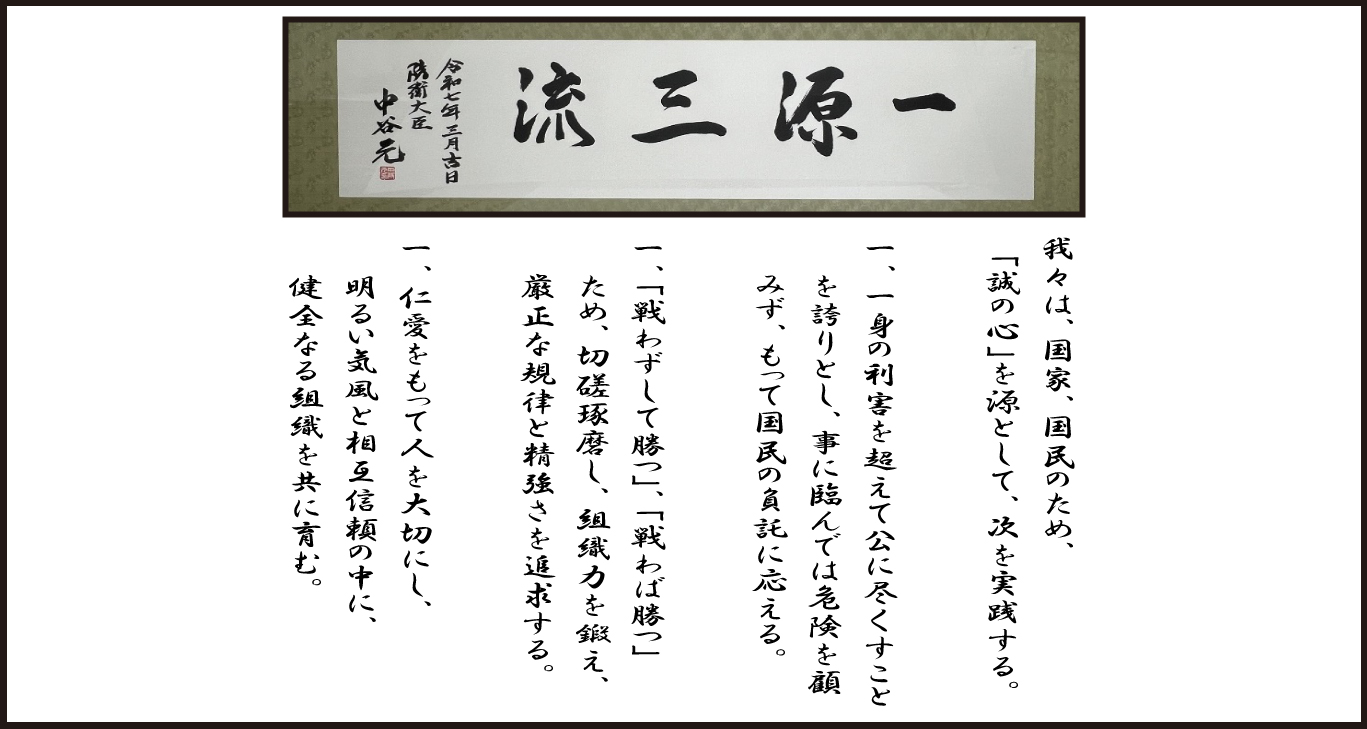 一源三流
令和七年三月吉日
防衛大臣
中谷元
我々は、国家、国民のため、
「誠の心」を源として、次を実践する。
一、一身の利害を超えて公に尽くすこと
を誇りとし、事に臨んでは危険を顧
みず、もって国民の負託に応える。
一、「戦わずして勝つ」、「戦わば勝つ」
ため、切磋琢磨し、組織力を鍛え、
厳正な規律と精強さを追求する。
一、仁愛をもって人を大切にし、
明るい気風と相互信頼の中に、
健全なる組織を共に育む。